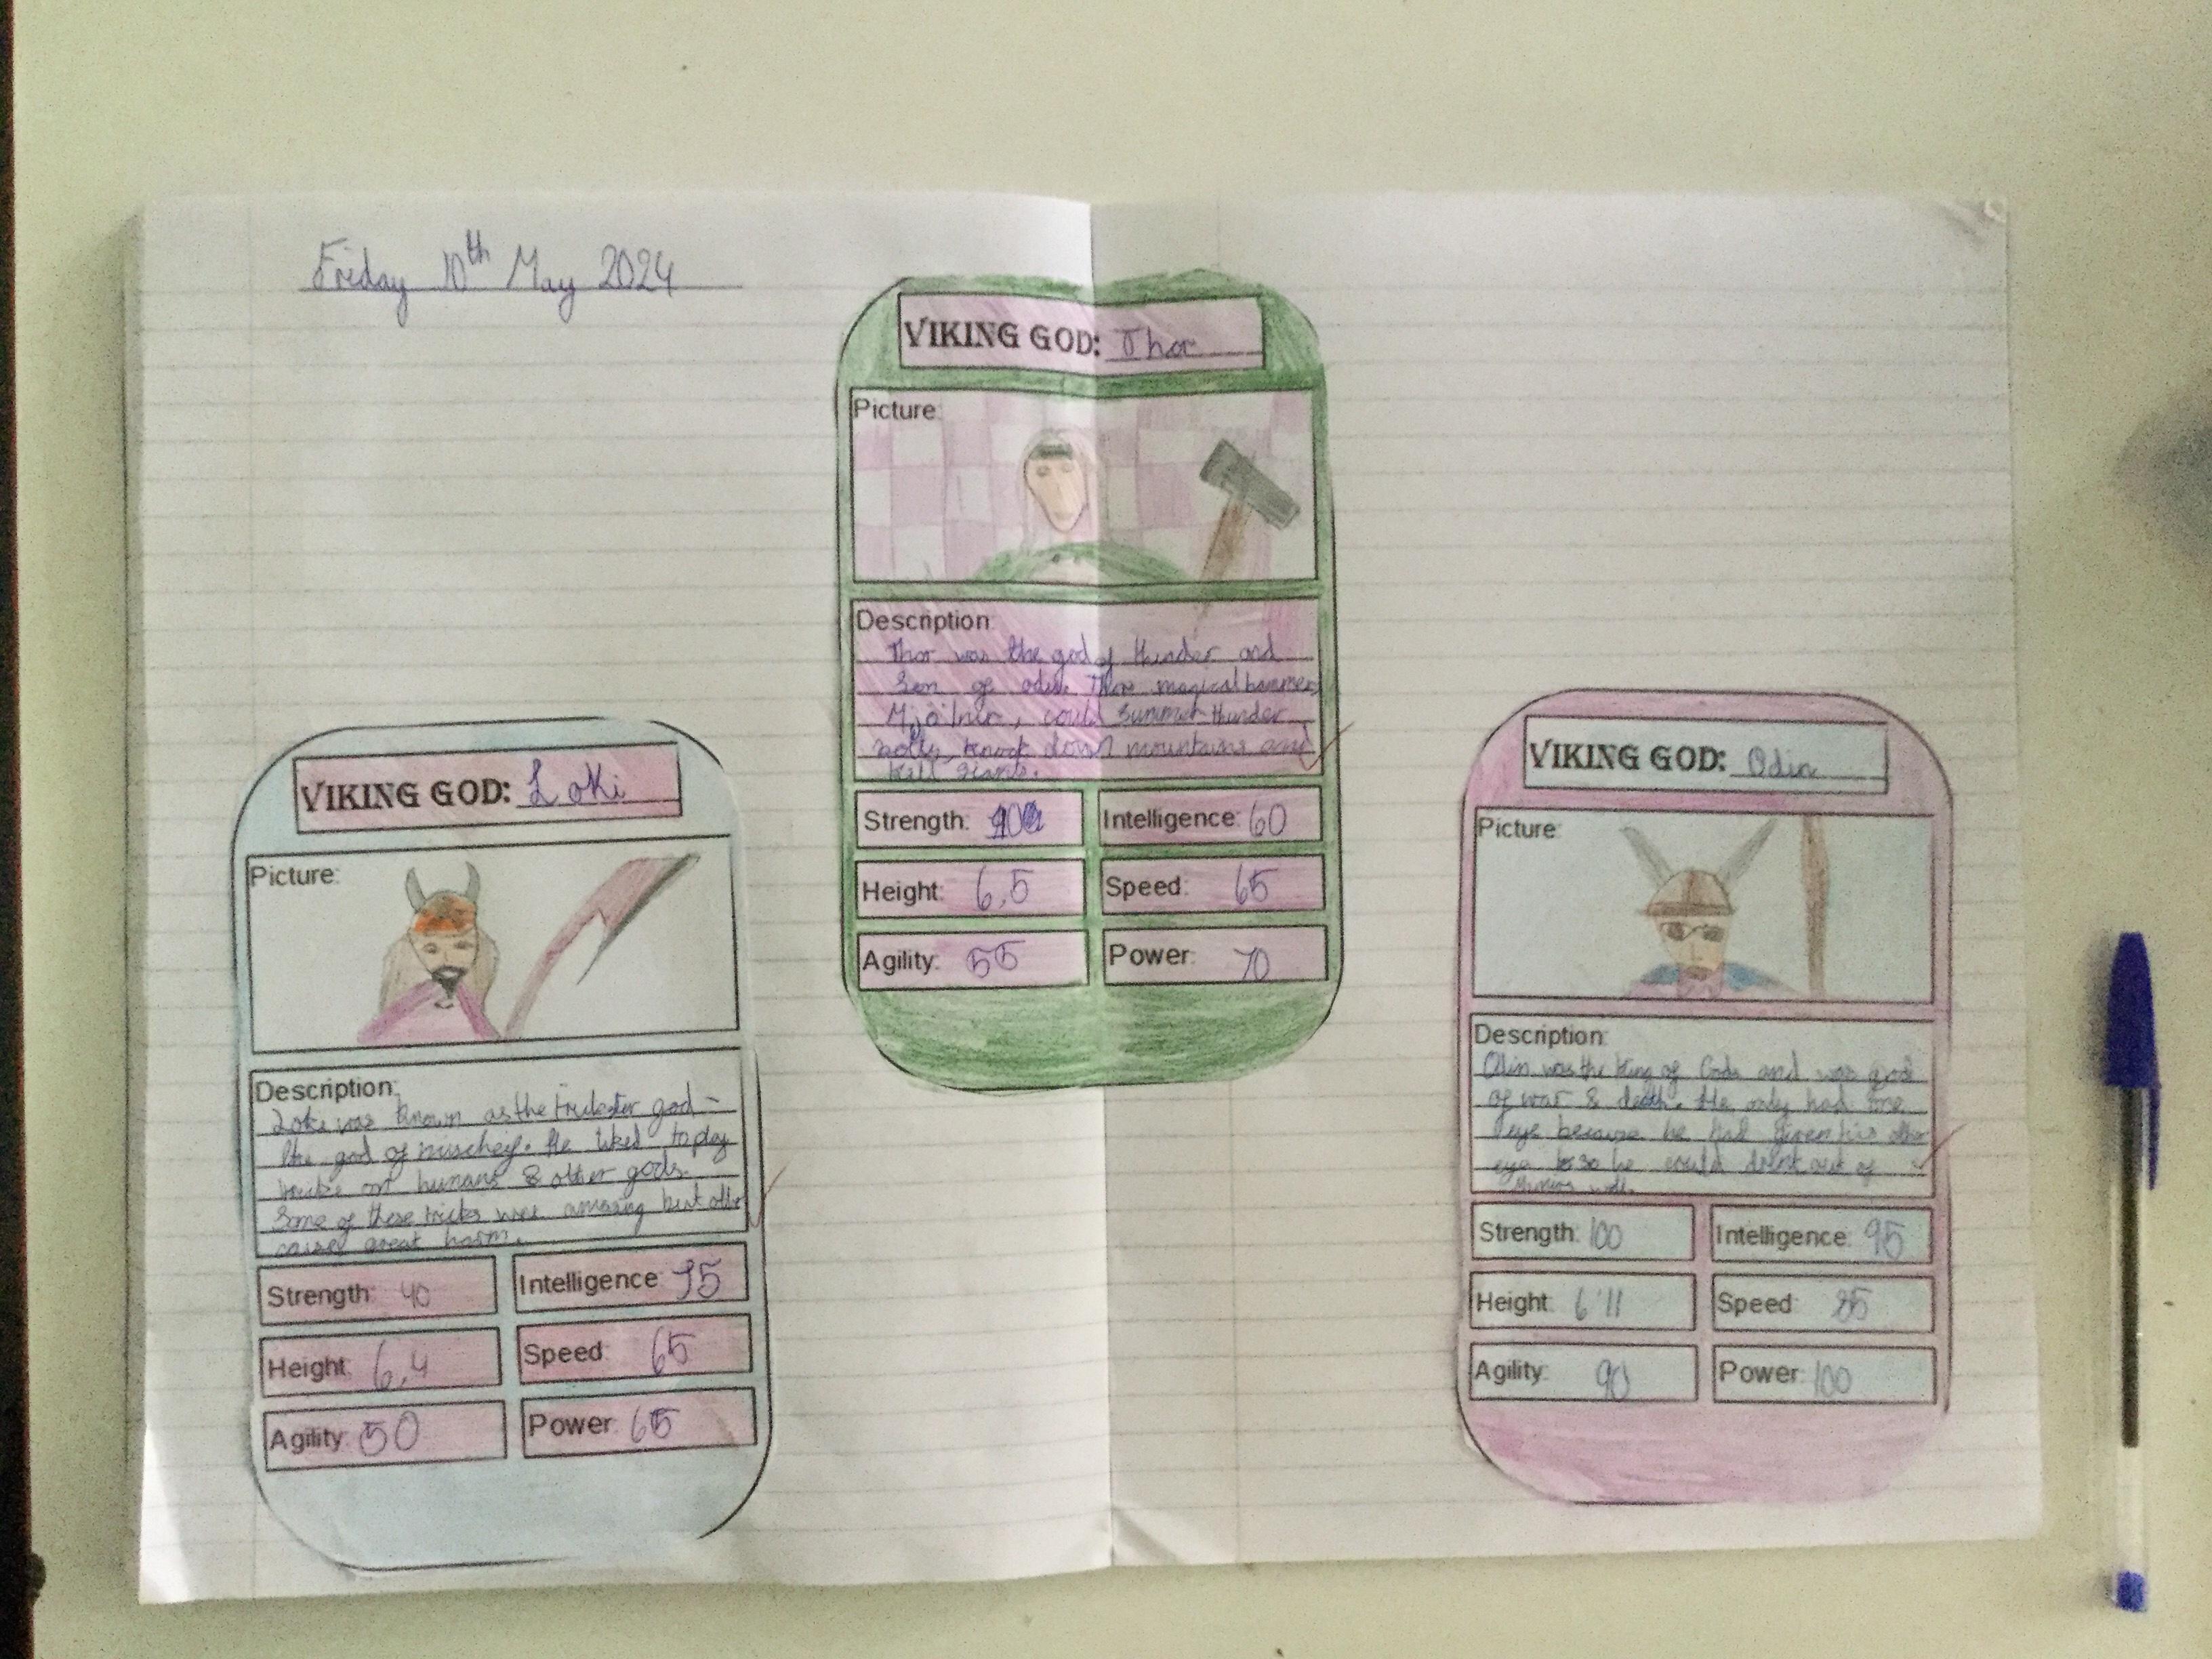 Friday 10th May 2024
VIKING GOD: Loki
Picture:
Description:
Loki was known as the trickster god -
the god of mischef. He liked to play
tricks on humans & other gods.
Some of these tricks were amazing but other
caused great harm.
Strength: 40
Intelligence: 95
Height: 6,4
Speed: 65
Agility: 50
Power: 65
VIKING GOD: Thor
Picture:
Description:
Thor was the god of thunder and
Son of odin. Thors magical hammer,
could thunder
knock down mountains and
kill giants.
Strength:
Intelligence: 60
Height: 6,5
Speed: 65
Agility: 55
Power: 70
VIKING GOD: Odin
Picture:
Description:
Odin was the King of Gods and was god
of war & death. He only had one
eye because he had given his other
eye so he could drink out of
well.
Strength: 100
Intelligence: 95
Height: 6'11
Speed:
Agility: 90
Power: 100